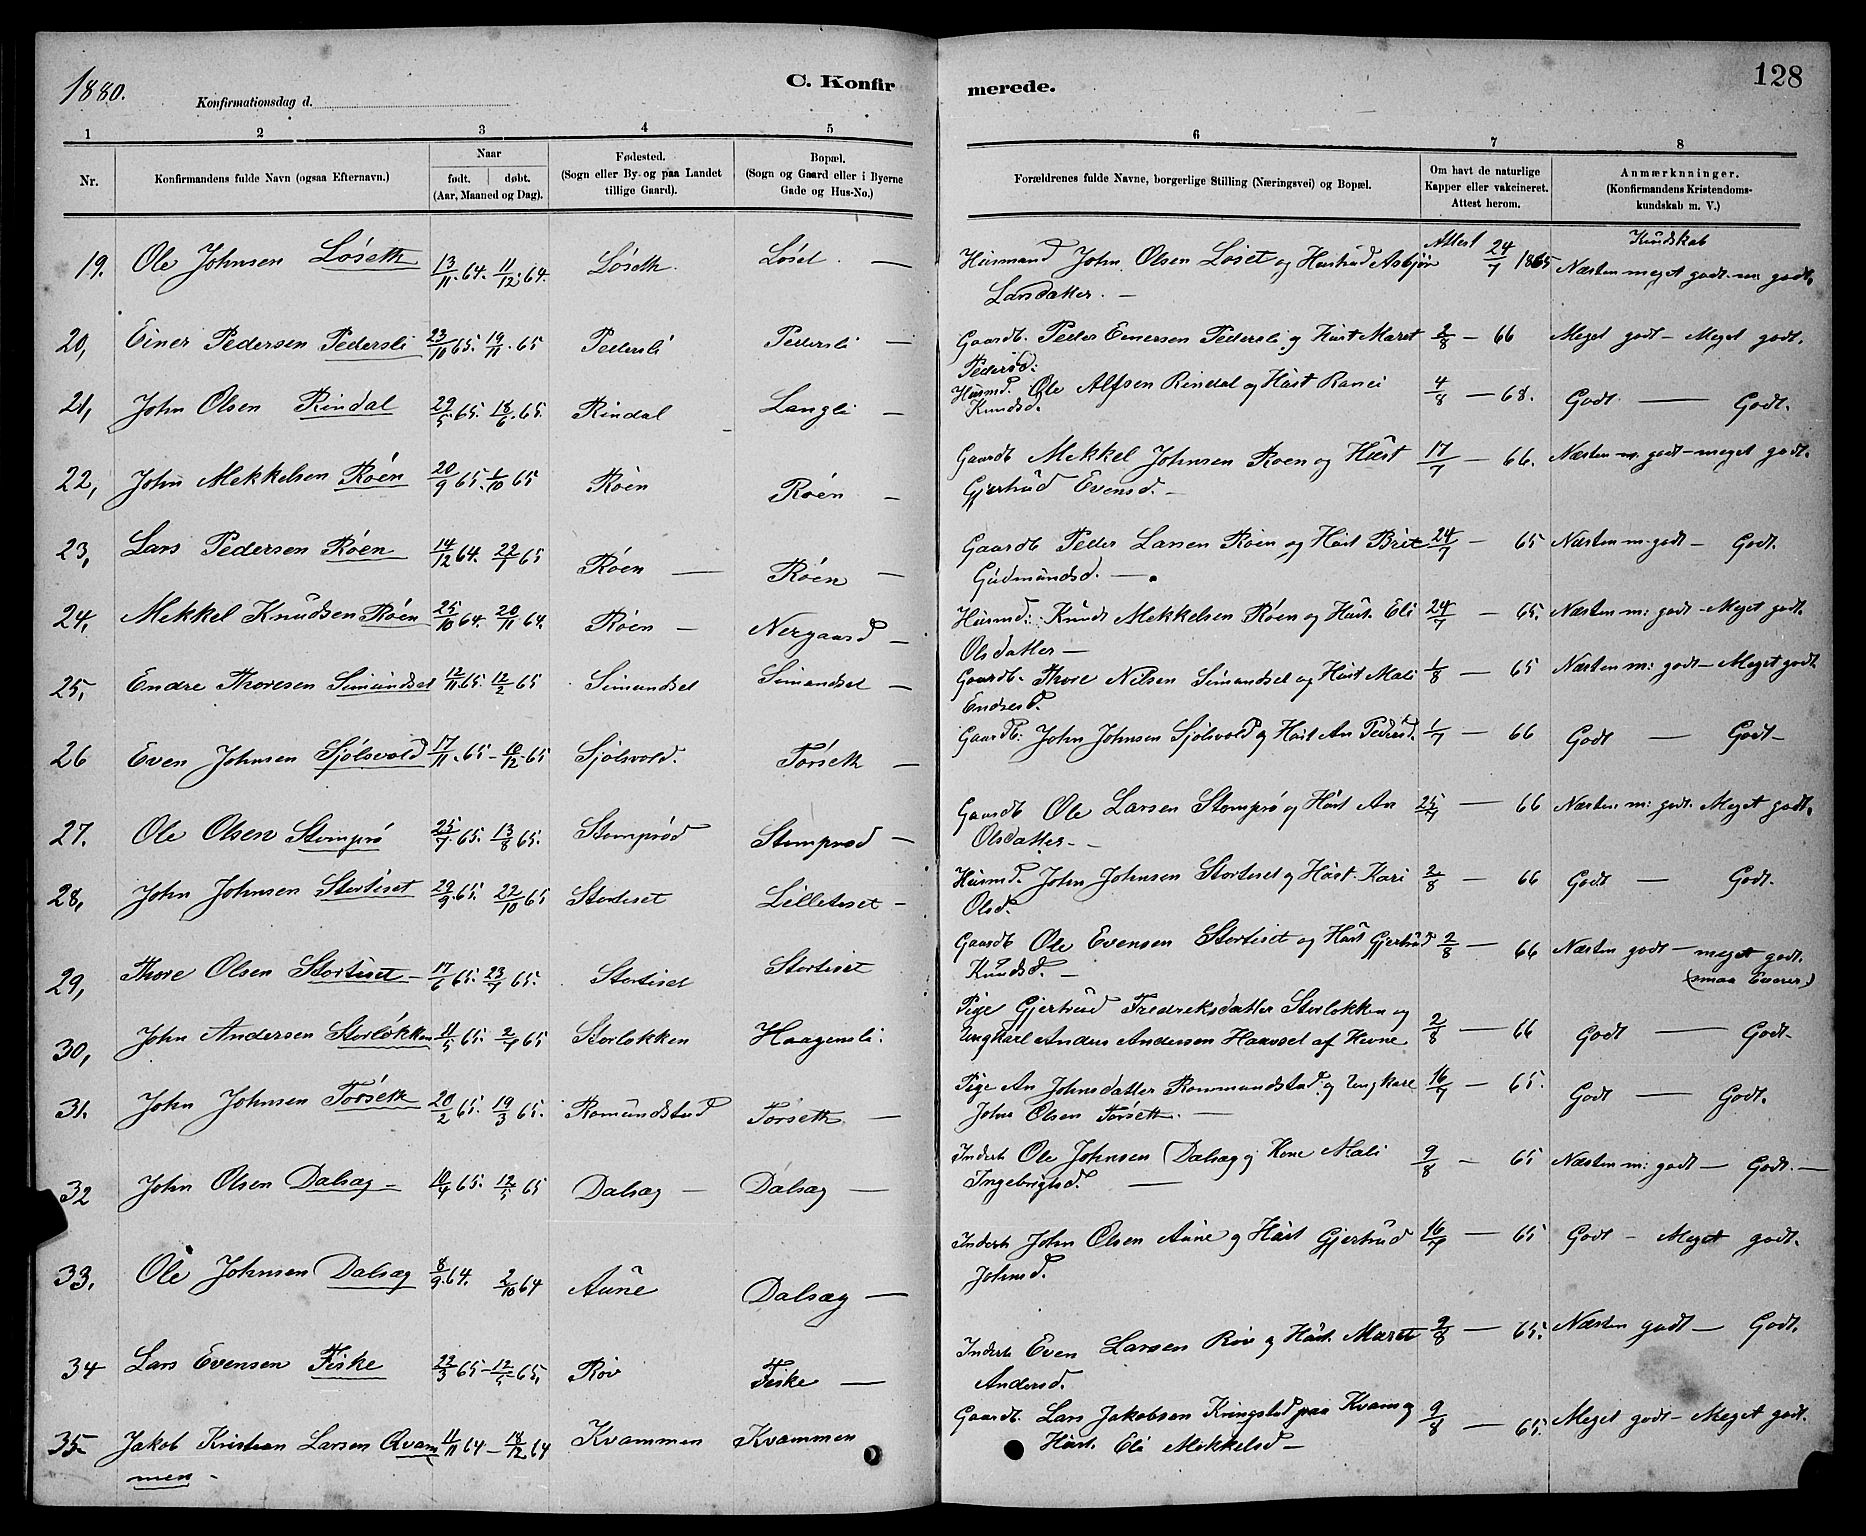 1880.
Konfirmationsdag d.
C. Konfirmerede.
128
1 2 3 4 5 6 7 8
Nr.
Konfirmandens fulde Navn (ogsaa Efternavn.)
Naar
født. døbt.
(Aar, Maaned og Dag).
Fødested.
(Sogn eller By og paa Landet
tillige Gaard).
Bopæl.
(Sogn og Gaard eller i Byerne
Gade og Hus-No.)
Forældrenes fulde Navne, borgerlige Stilling (Næringsvei) og Bopæl.
Om havt de naturlige
Kapper eller vakcineret.
Attest herom.
Anmærkninger.
(Konfirmandens Kristendoms-
kundskab m. V.)
Attest Kundskab
19. Ole Johnsen Løseth 13/11 64. 11/12 64. Løseth. Løset — Husmand John Olsen Løset og Hustrud Asbjør 24/7 1865 Næsten meget godt m: godt.
Larsdatter. —
20, Einer Pedersen Pedersli 23/10 65. 19/11 65 Pedersli Pedersli — Gaardb. Peder Einersen Pedersli og Hust Maret 2/8 — 66 Meget godt — Meget godt.
Pedersd:
21, John Olsen Rindal 29/5 65. 18/6 65. Rindal Langli — Husmd. Ole Alfsen Rindal og Hust Ranei 4/8 — 68. Godt — Godt.
Knudsd.
22, John Mekkelsen Røen 20/9 65. 1/10 65 Røen Røen — Gaardb Mekkel Johnsen Roen og Hust 17/7 — 66. Næsten m. godt — meget godt.
Gjertrud Evensd. —
23, Lars Pedersen Røen 14/12 64. 22/1 65 Røen — Røen — Gaardb Peder Larsen Roen og Hust Brit 24/7 — 65 Næsten m. godt — Godt.
Gudmundsd. —
24, Mekkel Knudsen Røen 25/10 64. 20/11 64. Røen — Nergaard — Husmd: Knudt Mekkelsen Røen og Hust. Eli 24/7 — 65. Næsten m: godt — Meget godt.
Olsdatter —
25, Endre Thoresen Simundset 12/11 65. 12/2 65 Simundset Simundset — Gaardb. Thore Nilsen Simundset og Hust Mali 1/8 — 65 Næsten m: godt — Meget godt
Endresd.
26 Even Johnsen Sjølsvold 17/11 65 — 10/12 65 Sjølsvold. Torseth — Gaardb: John Johnsen Sjolsvold og Hust An Pedersd. 1/7 — 66 Godt — Godt —
27. Ole Olsen Stomprø 25/7 65. 13/8 65. Stomprød Stomprød — Gaardb Ole Larsen Stomprø og Hust An 25/7 — 66 Næsten m: godt. Meget godt.
Olsdatter —
28, John Johnsen Stortiset 29/9 65. 22/10 65 Stortiset Lilletiset — Husmd. John Johnsen Stortiset og Hust. Kari 2/8 — 66 Godt — Godt.
Olsd.
29, Thore Olsen Stortiset — 17/6 65. 23/7 65. Stortiset Stortiset Gaardb Ole Evensen Stortiset og Hust Gjertrud 2/8 — 66 Næsten godt — meget godt.
Knudsd. — (smaa Evner)
30, John Andersen Storløkken 11/5 65. 2/7 65 Storløkken Haagensli. Pige Gjertrud Fredreksdatter Storløkken og
Ungkarl Anders Andersen Haavset af Hevne 2/8 — 66 Godt — Godt —
31. John Johnsen Torseth 20/2 65. 19/3 65. Romundstad Torseth — Pige An Johnsdatter Rommundstad og Ungkarl 16/7 — 65. Godt — Godt.
John Olsen Torseth. —
32 John Olsen Dalsæg — 10/4 65. 12/5 65 Dalsæg — Dalsæg — Inderst Ole Johnsen Dalsæg og Kone Mali 9/8 — 65 Næsten m: godt — Godt. —
Ingebrigtsd. —
33. Ole Johnsen Dalsæg 8/9 64. 2/10 64 Aune Dalsæg — Inderst John Olsen Aune og Hust Gjertrud 16/7 — 65 Godt — Meget godt.
Johnsd.
34 Lars Evensen Fiske 22/3 65 — 12/5 65. Rov Fiske — Inderst Even Larsen Rov og Hust. Maret 9/8 — 65. Næsten godt — Godt.
Andersd.
35 Jakob Kristian Larsen Qvam 11/11 64 — 18/12 64 Kvammen Kvammen Gaardb. Lars Jakobsen Kringstad paa Kvam og 9/8 — 65. Meget godt — Meget godt.
men — Hust. Eli Mekkelsd —